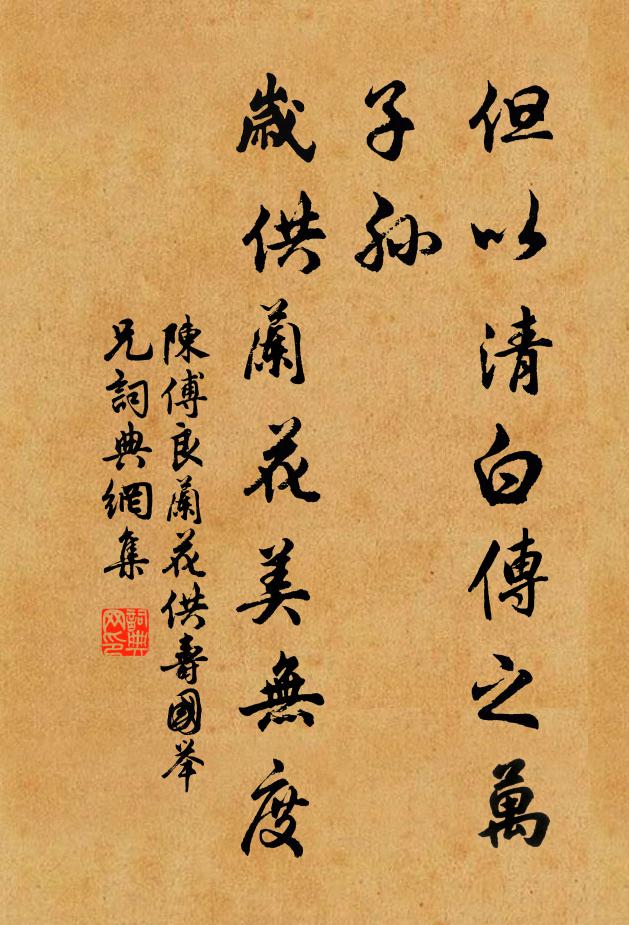 但以清白傳之萬
子孫
歲供蘭花美無度
陳傅良蘭花供壽國舉
兄詞典網集
詞典
网印